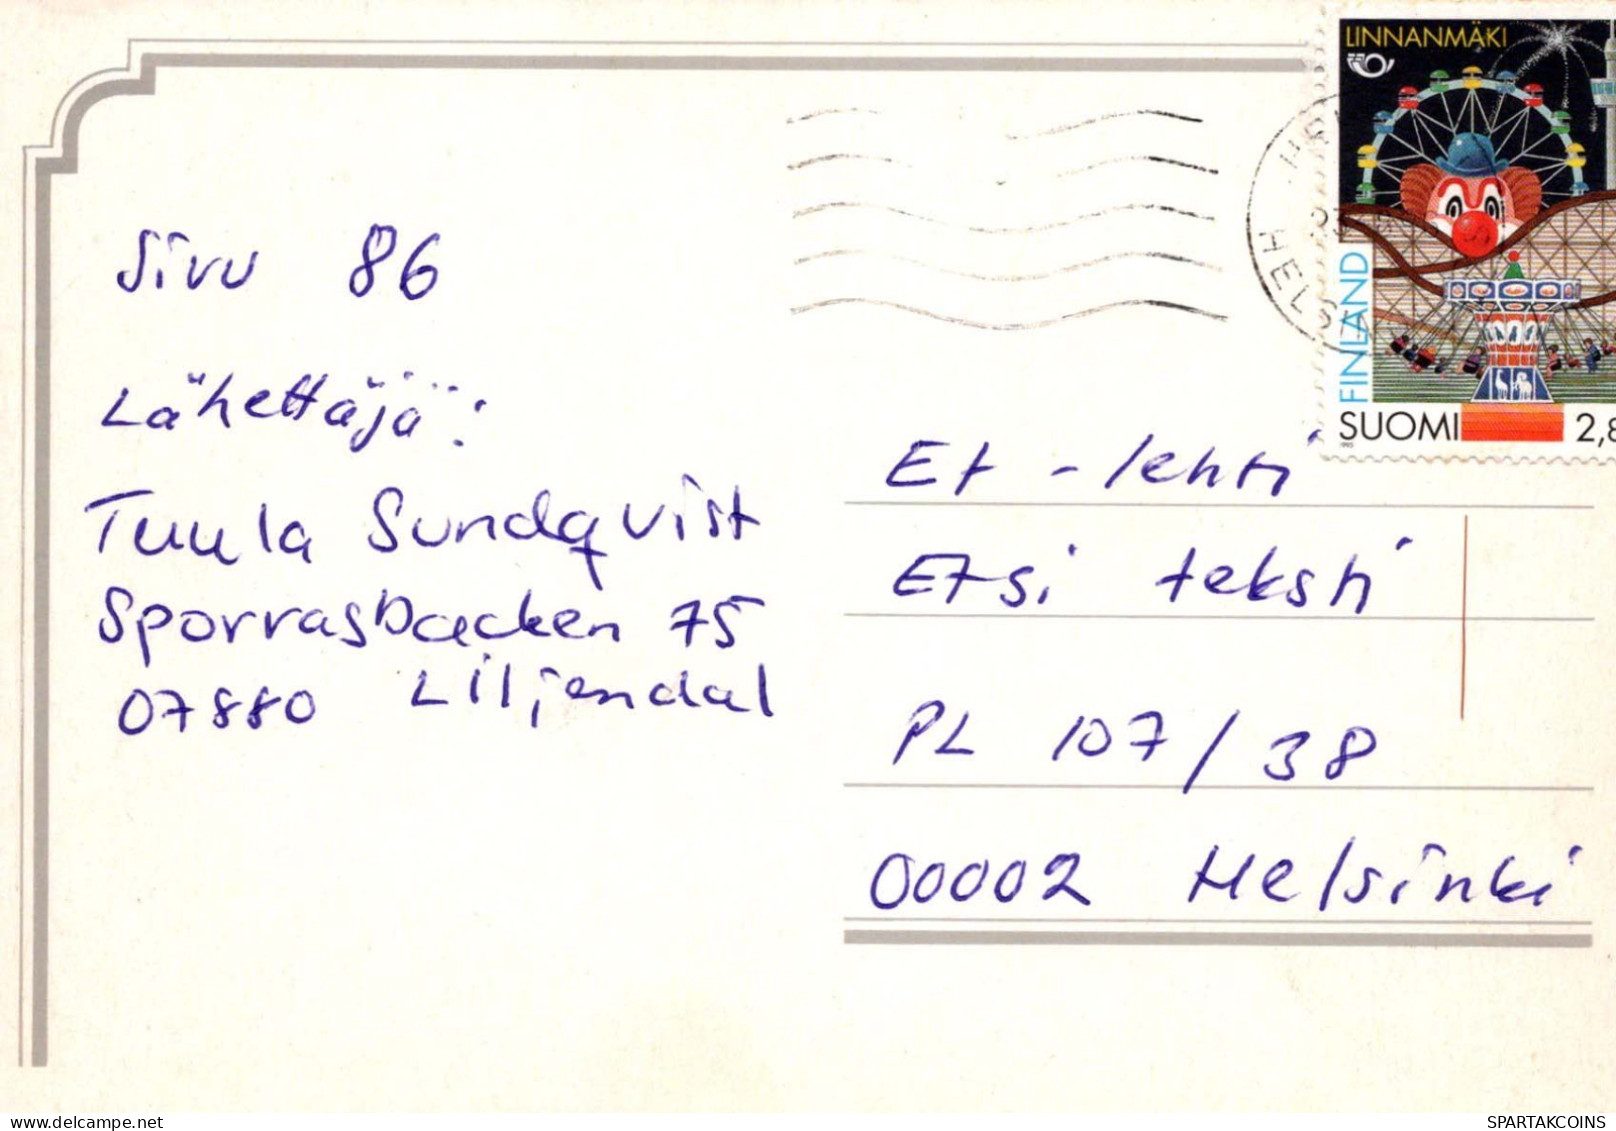 LINNANMÄKI
FINLAND
SUOMI 2,8
1995
HELS
Sivu 86
Lähettäjä:
Tuula Sundqvist
Sporrasbacken 75
07880 Liljendal
Et - lehti
Etsi teksti
PL 107/38
00002 Helsinki
SPARTAKCOINS